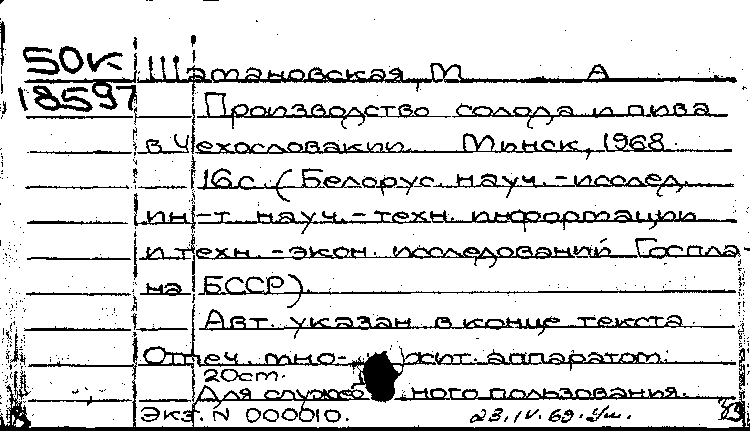 50К Шатановская, М А
18597 Производство солода и пива
в Чехословакии. Минск, 1968.
16 с. (Белорус. науч.-исслед.
ин-т науч.-техн. информации
и техн.-экон. исследований Госпла-
на БССР).
Авт. указан в конце текста
Отпеч. мно- жит. аппаратом.
20 cm.
Для служеб ного пользования.
Экз. N 000010. 23.IV.69.